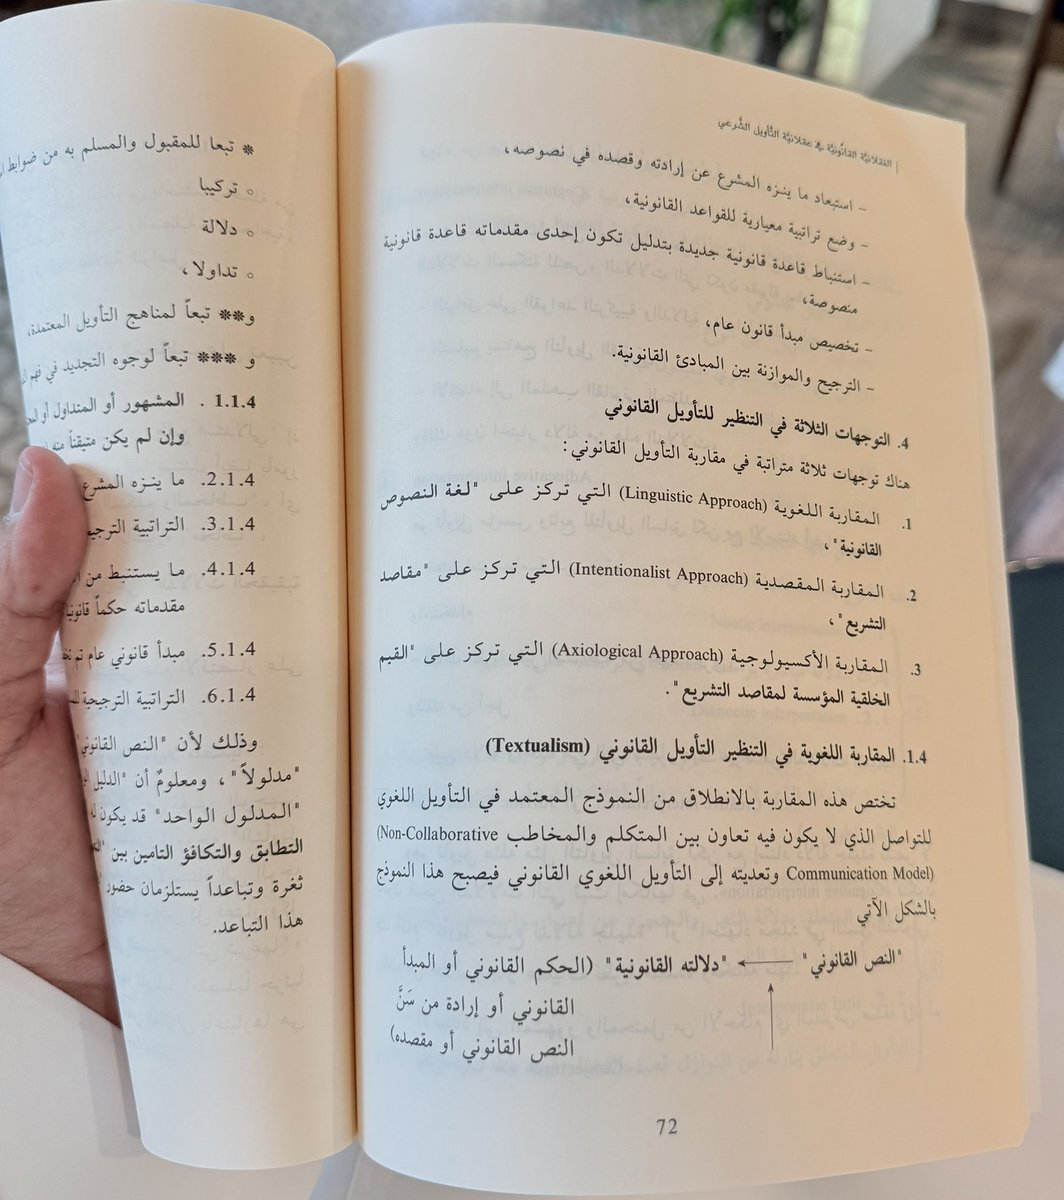 العقلانيَّة القانُونيَّة في عقلانيَّة التَّأويل الشَّرعي
- استبعاد ما ينزه المشرع عن إرادته وقصده في نصوصه،
- وضع تراتبية معيارية للقواعد القانونية،
- استنباط قاعدة قانونية جديدة بتدليل تكون إحدى مقدماته قاعدة قانونية
منصوصة،
- تخصيص مبدأ قانون عام،
- الترجيح والموازنة بين المبادئ القانونية.
4. التوجهات الثلاثة في التنظير للتأويل القانوني
هناك توجهات ثلاثة متراتبة في مقاربة التأويل القانوني:
1. المقاربة اللغوية (Linguistic Approach) التي تركز على "لغة النصوص
القانونية"،
2. المقاربة المقصدية (Intentionalist Approach) التي تركز على "مقاصد
التشريع"،
3. المقاربة الأكسيولوجية (Axiological Approach) التي تركز على "القيم
الخلقية المؤسسة لمقاصد التشريع".
1.4. المقاربة اللغوية في التنظير التأويل القانوني (Textualism)
تختص هذه المقاربة بالانطلاق من النموذج المعتمد في التأويل اللغوي
للتواصل الذي لا يكون فيه تعاون بين المتكلم والمخاطب (Non-Collaborative
Communication Model) وتعديته إلى التأويل اللغوي القانوني فيصبح هذا النموذج
بالشكل الآتي
"النص القانوني" ← "دلالته القانونية" (الحكم القانوني أو المبدأ
القانوني أو إرادة من سَنَّ
النص القانوني أو مقصده)
72
* تبعا للمقبول والمسلم به من ضوابط
○ تركيبا
○ دلالة
○ تداولا،
و** تبعاً لمناهج التأويل المعتمدة،
و *** تبعاً لوجوه التجديد في فهم
1.1.4. المشهور أو المتداول أو
وإن لم يكن متيقناً منه
2.1.4. ما ينزه المشرع
3.1.4. التراتبية
4.1.4. ما يستنبط من
مقدماته حكماً
5.1.4. مبدأ قانوني عام تم
6.1.4. التراتبية الترجيحية
وذلك لأن "النص القانوني"
"مدلولاً"، ومعلومٌ أن "الدليل
"المدلول الواحد" قد يكون
التطابق والتكافؤ التامين بين
ثغرة وتباعداً يستلزمان حضور
هذا التباعد.